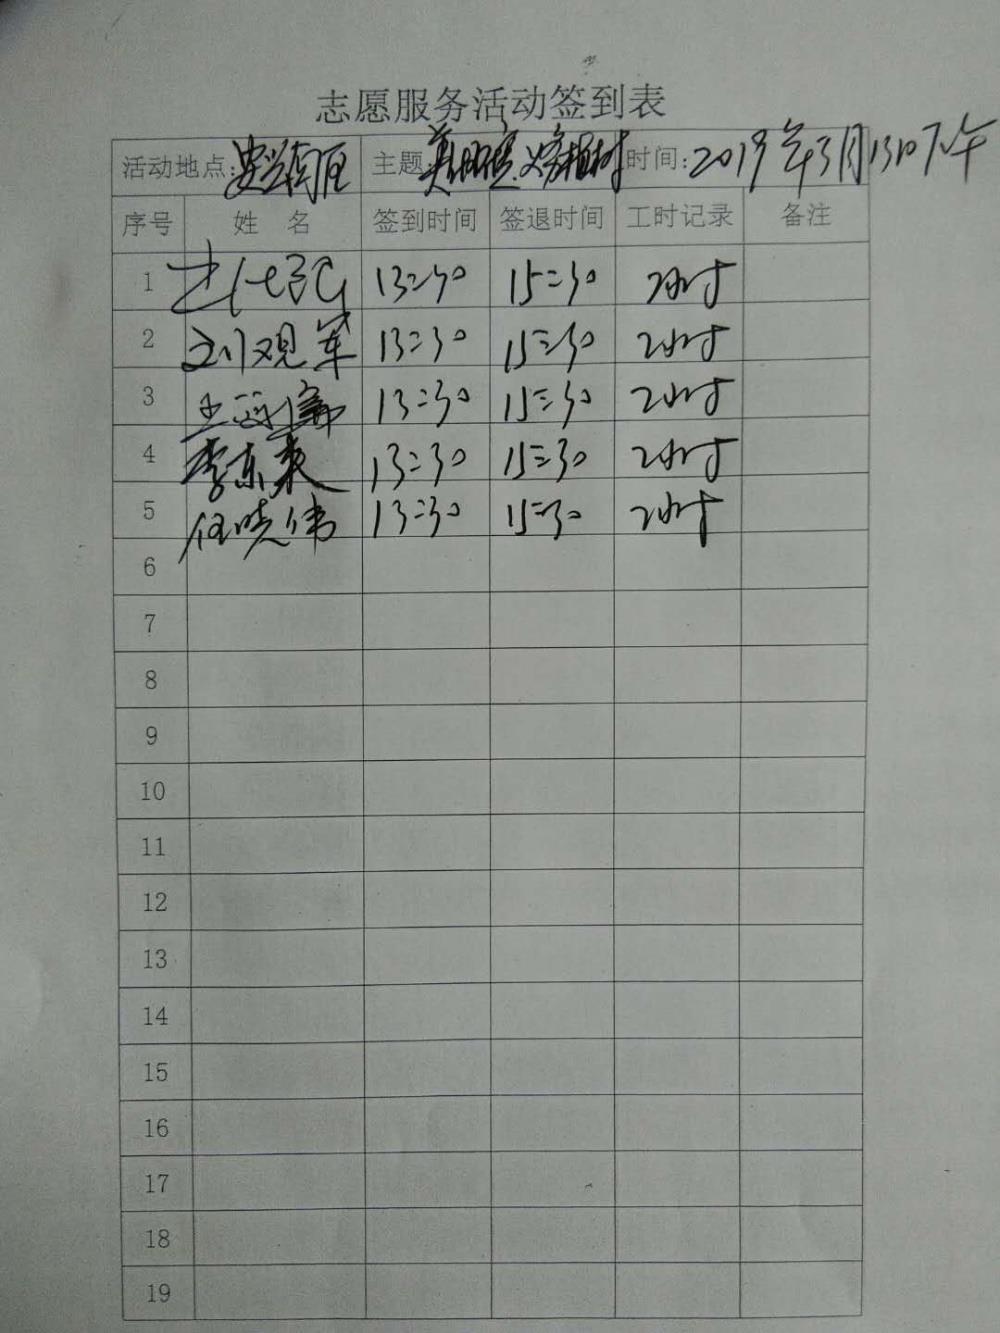 志愿服务活动签到表
活动地点: 主题: 义务植树 时间: 2019年3月13日下午
序号 姓 名 签到时间 签退时间 工时记录 备注
1 13:30 15:30 2小时
2 刘观军 13:30 15:30 2小时
3 王 13:30 15:30 2小时
4 李东来 13:30 15:30 2小时
5 任晓伟 13:30 15:30 2小时
6
7
8
9
10
11
12
13
14
15
16
17
18
19